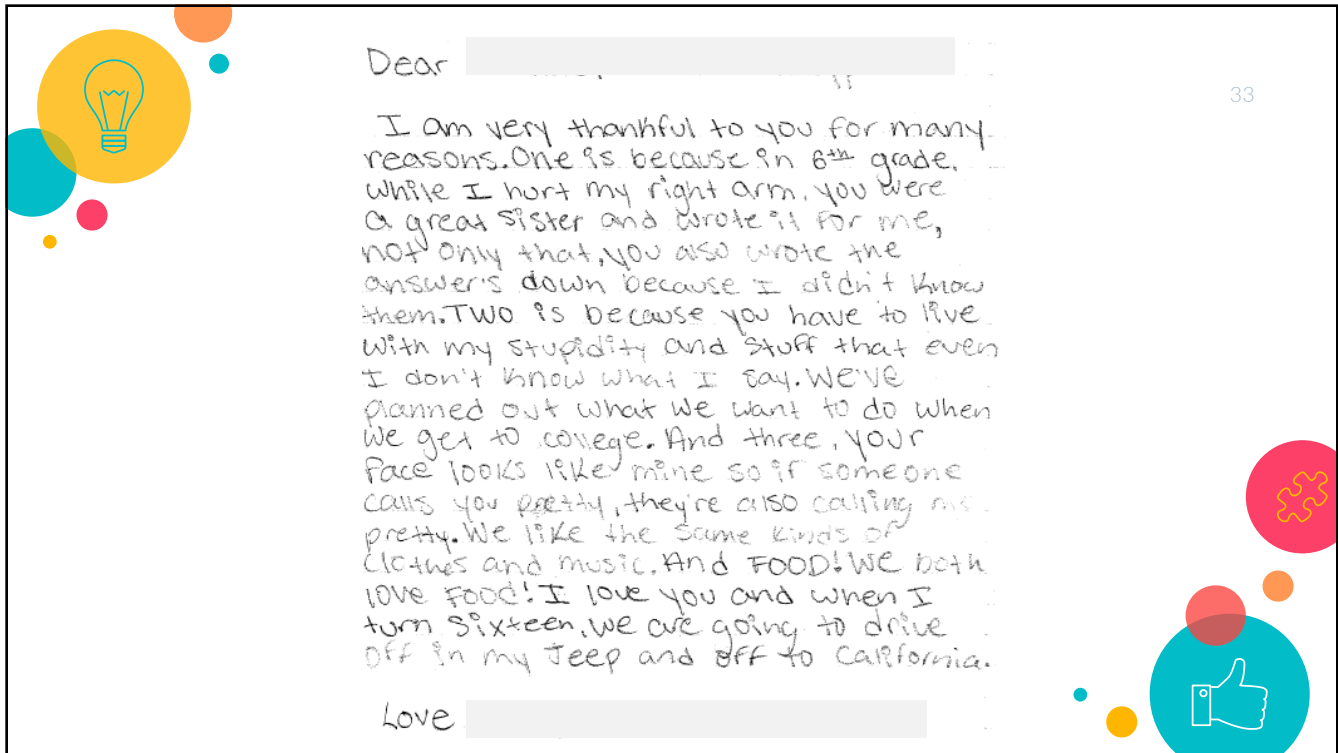 Dear
33
I am very thankful to you for many
reasons. One is because in 6th grade.
While I hurt my right arm, you were
a great sister and wrote it for me,
not only that, you also wrote the
answer's down because I didn't know
them. TWO is because you have to live
with my stupidity and stuff that even
I don't know what I say. We've
planned out what we want to do when
we get to college. And three, your
face looks like mine so if someone
calls you pretty, they're also calling me
pretty. We like the same kinds of
clothes and music. And FOOD! We both
love FOOD! I love you and when I
turn sixteen, we are going to drive
off in my Jeep and off to California.
Love